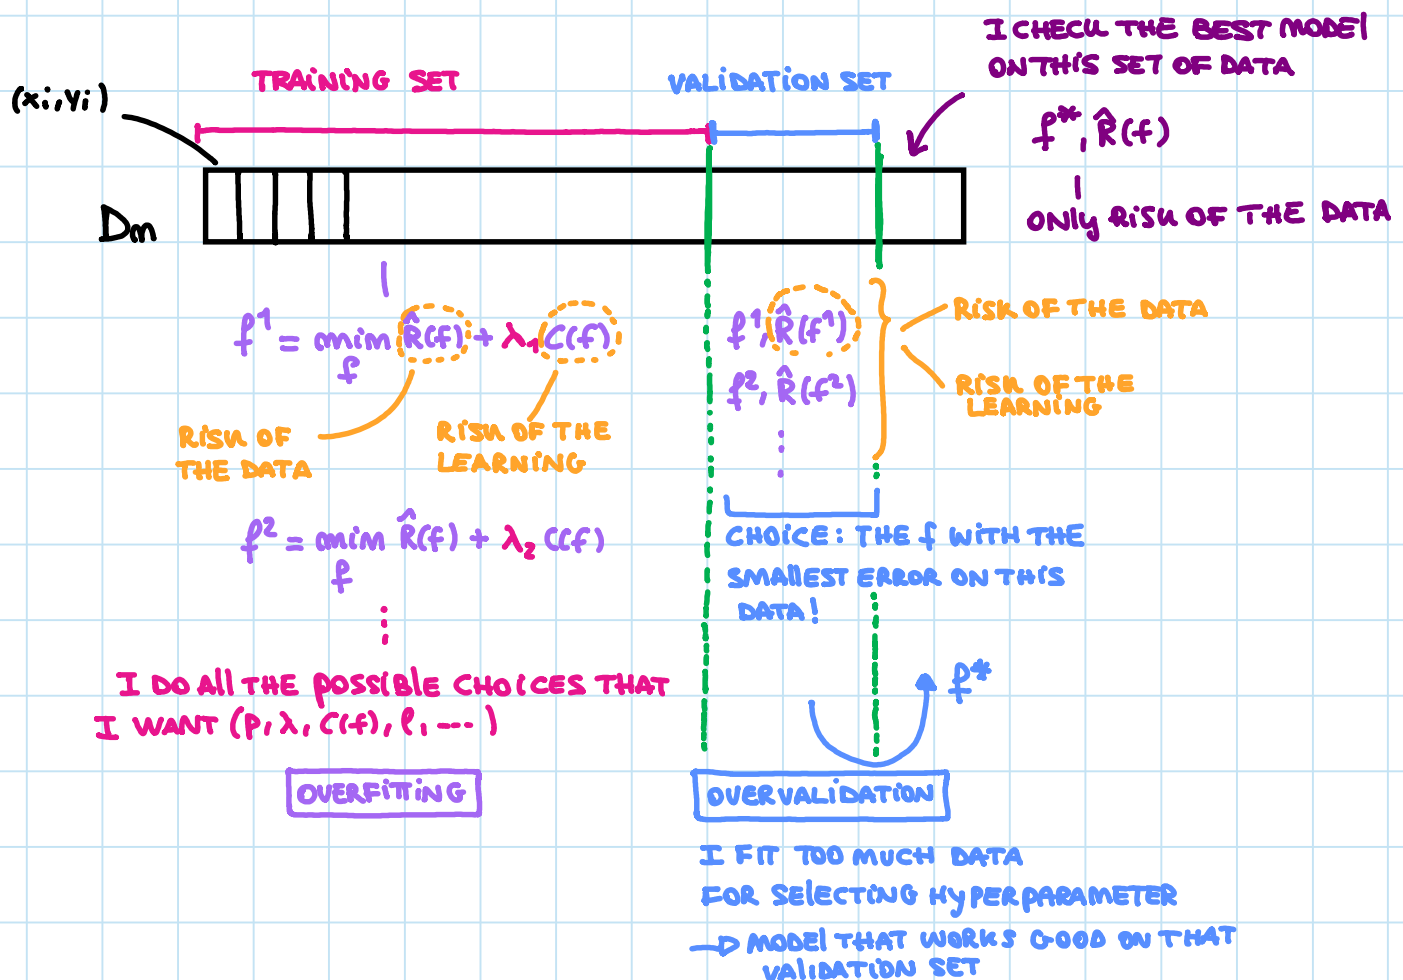 I CHECK THE BEST MODEL
ON THIS SET OF DATA
f*, R̂(f)
ONLY RISK OF THE DATA
TRAINING SET
VALIDATION SET
(xi, yi)
Dm
f¹ = min R̂(f) + λ₁ C(f)
f
RISK OF
THE DATA
RISK OF THE
LEARNING
f² = min R̂(f) + λ₂ C(f)
f
I DO All THE POSSIBLE CHOICES THAT
I WANT (P, λ, C(f), ℓ, ....)
OVERFITTING
f¹, R̂(f¹)
f², R̂(f²)
RISK OF THE DATA
RISK OF THE
LEARNING
CHOICE: THE f WITH THE
SMALLEST ERROR ON THIS
DATA!
f*
OVERVALIDATION
I FIT TOO MUCH DATA
FOR SELECTING HYPERPARAMETER
→ MODEL THAT WORKS GOOD ON THAT
VALIDATION SET